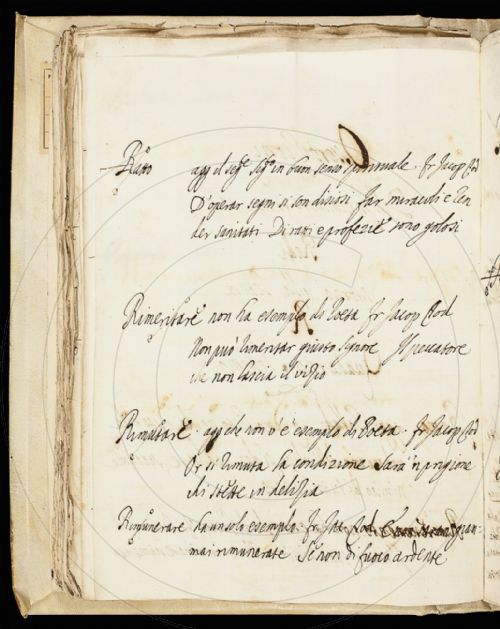 Ratto agg il seg.e sig.o in buon senso spirituale. Fr Jacop Tod
D'operar segni si son disiosi far miracoli e Ren
der sanitati Di ratti e profezie sono golosi
Rimeritare non ha esempio di Poeta Fr Jacop Tod
Non può rimeritar giusto signore Il peccatore
che non lascia il vizio
Rimutare. agg che non v'è esempio di Poeta. Fr Jacop Tod
Or si rimuta la condizione Sara 'n prigione
chi stette in delizia
Rimunerare ha un solo esempio. Fr Jac Tod
mai rimunerate Se non di fuoco ardente